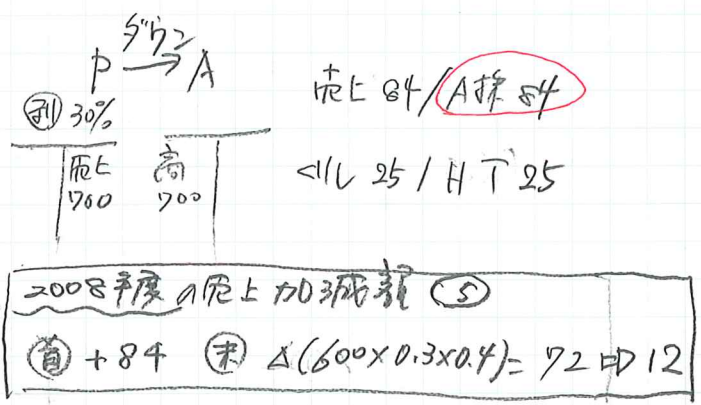 ダウン
P → A
利 30%
売上 700
高 700
売上 84 / A株 84
25 / H T 25
2008年度の売上加減額 ⑤
首 +84 末 △(600×0.3×0.4)= 72 ⇒ 12